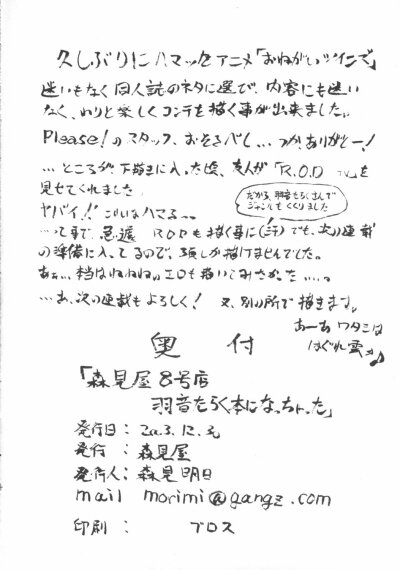 久しぶりにハマったアニメ「おねがい☆ツインズ」
迷いもなく同人誌のネタに選び、内容にも迷い
なく、わりと楽しくコンテを描く事が出来ました。
Please!のスタッフ、おそるべし…つか、ありがとー!
…ところが下描きに入った頃、友人が「R.O.D TV」を
見せてくれました
だから、羽音たらくさんで
ジャンルをくくりました
ヤバイ!!こいないハマる〜〜
…って事で、急遽 R.O.Dも描く事に(汗)でも、次の連載
の準備に入ってるので、3頁しか描けませんでした。
あぁ…本当はねねねのエロも描いてみたかった……。
…あ、次の連載もよろしく! 又、別の所で描きます。
あーあ ワタシは
はぐれ雲か♪
奥付
「森見屋8号店
羽音たらく本になっちゃった」
発行日: 2003.12.30
発行: 森見屋
発行人: 森見明日
mail morimi@gangz.com
印刷: プロス